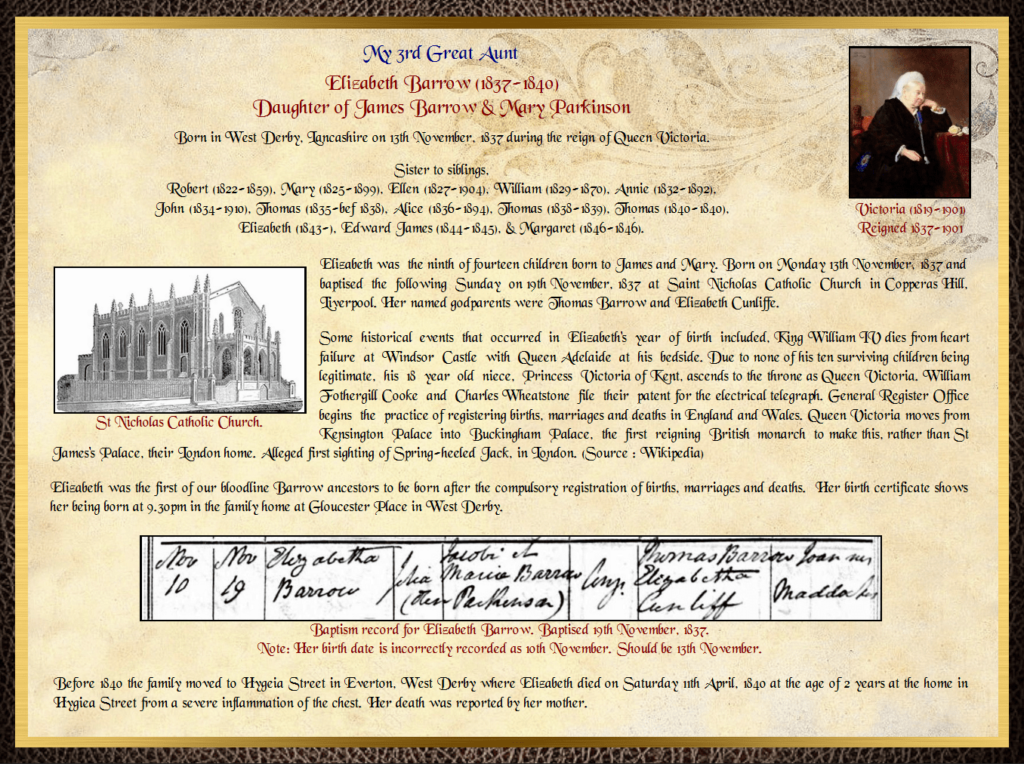 My 3rd Great Aunt
Elizabeth Barrow (1837-1840)
Daughter of James Barrow & Mary Parkinson
Born in West Derby, Lancashire on 13th November, 1837 during the reign of Queen Victoria.
Sister to siblings,
Robert (1822-1859), Mary (1825-1899), Ellen (1827-1904), William (1829-1870), Annie (1832-1892),
John (1834-1910), Thomas (1835-bef 1838), Alice (1836-1894), Thomas (1838-1839), Thomas (1840-1840),
Elizabeth (1843-), Edward James (1844-1845), & Margaret (1846-1846).
Victoria (1819-1901)
Reigned 1837-1901
Elizabeth was the ninth of fourteen children born to James and Mary. Born on Monday 13th November, 1837 and
baptised the following Sunday on 19th November, 1837 at Saint Nicholas Catholic Church in Copperas Hill,
Liverpool. Her named godparents were Thomas Barrow and Elizabeth Cunliffe.
Some historical events that occurred in Elizabeth's year of birth included, King William IV dies from heart
failure at Windsor Castle with Queen Adelaide at his bedside. Due to none of his ten surviving children being
legitimate, his 18 year old niece, Princess Victoria of Kent, ascends to the throne as Queen Victoria. William
Fothergill Cooke and Charles Wheatstone file their patent for the electrical telegraph. General Register Office
begins the practice of registering births, marriages and deaths in England and Wales. Queen Victoria moves from
Kensington Palace into Buckingham Palace, the first reigning British monarch to make this, rather than St
James's Palace, their London home. Alleged first sighting of Spring-heeled Jack, in London. (Source : Wikipedia)
St Nicholas Catholic Church.
Elizabeth was the first of our bloodline Barrow ancestors to be born after the compulsory registration of births, marriages and deaths. Her birth certificate shows
her being born at 9.30pm in the family home at Gloucester Place in West Derby.
Nov Nov Elizabetha Jacobi et Thomas Barrow Joannes
10 19 Barrow filia Mariæ Barrow Conj. Elizabetha Maddocks
(olim Parkinson) Cunliff
Baptism record for Elizabeth Barrow. Baptised 19th November, 1837.
Note: Her birth date is incorrectly recorded as 10th November. Should be 13th November.
Before 1840 the family moved to Hygeia Street in Everton, West Derby where Elizabeth died on Saturday 11th April, 1840 at the age of 2 years at the home in
Hygiea Street from a severe inflammation of the chest. Her death was reported by her mother.